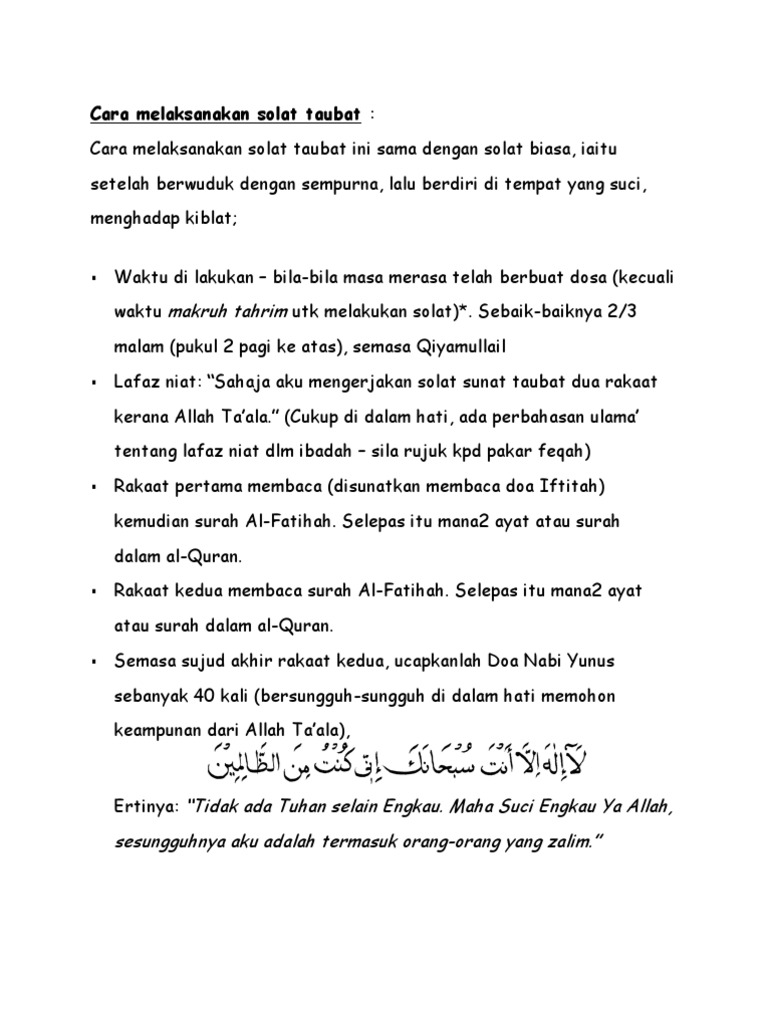 Cara melaksanakan solat taubat :
Cara melaksanakan solat taubat ini sama dengan solat biasa, iaitu
setelah berwuduk dengan sempurna, lalu berdiri di tempat yang suci,
menghadap kiblat;
▪ Waktu di lakukan – bila-bila masa merasa telah berbuat dosa (kecuali
waktu makruh tahrim utk melakukan solat)*. Sebaik-baiknya 2/3
malam (pukul 2 pagi ke atas), semasa Qiyamullail
▪ Lafaz niat: “Sahaja aku mengerjakan solat sunat taubat dua rakaat
kerana Allah Ta’ala.” (Cukup di dalam hati, ada perbahasan ulama’
tentang lafaz niat dlm ibadah – sila rujuk kpd pakar feqah)
▪ Rakaat pertama membaca (disunatkan membaca doa Iftitah)
kemudian surah Al-Fatihah. Selepas itu mana2 ayat atau surah
dalam al-Quran.
▪ Rakaat kedua membaca surah Al-Fatihah. Selepas itu mana2 ayat
atau surah dalam al-Quran.
▪ Semasa sujud akhir rakaat kedua, ucapkanlah Doa Nabi Yunus
sebanyak 40 kali (bersungguh-sungguh di dalam hati memohon
keampunan dari Allah Ta’ala),
لَآ إِلٰهَ اِلَّا أَنْتَ سُبْحَانَكَ إِنِّى كُنْتُ مِنَ الظَّالِمِيْنَ
Ertinya: “Tidak ada Tuhan selain Engkau. Maha Suci Engkau Ya Allah,
sesungguhnya aku adalah termasuk orang-orang yang zalim.”